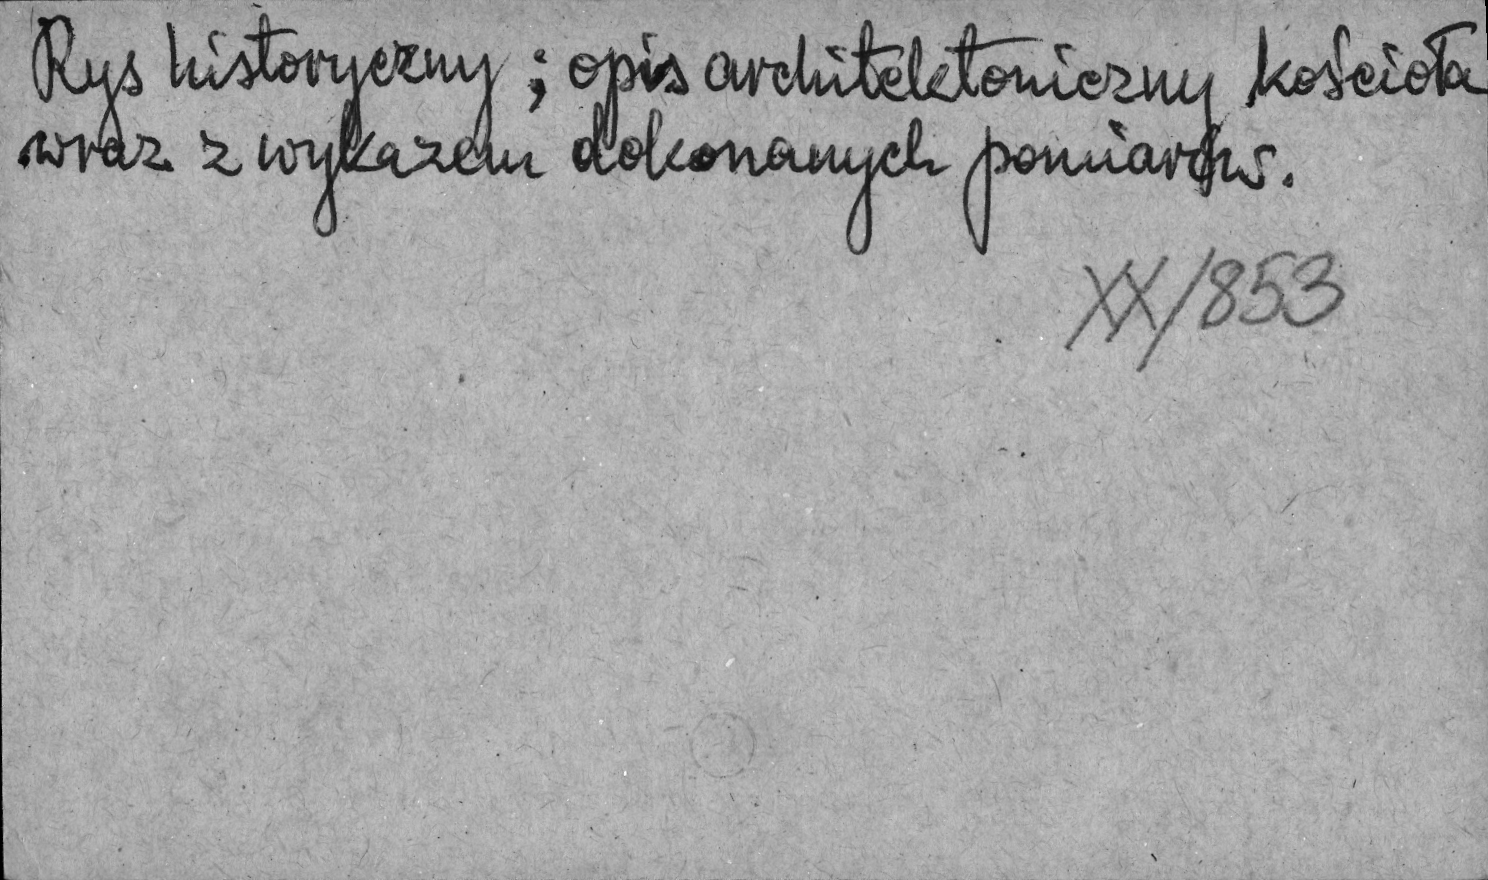 Rys historyczny ; opis architektoniczny kościoła
wraz z wykazem dokonanych pomiarów.
XX/853